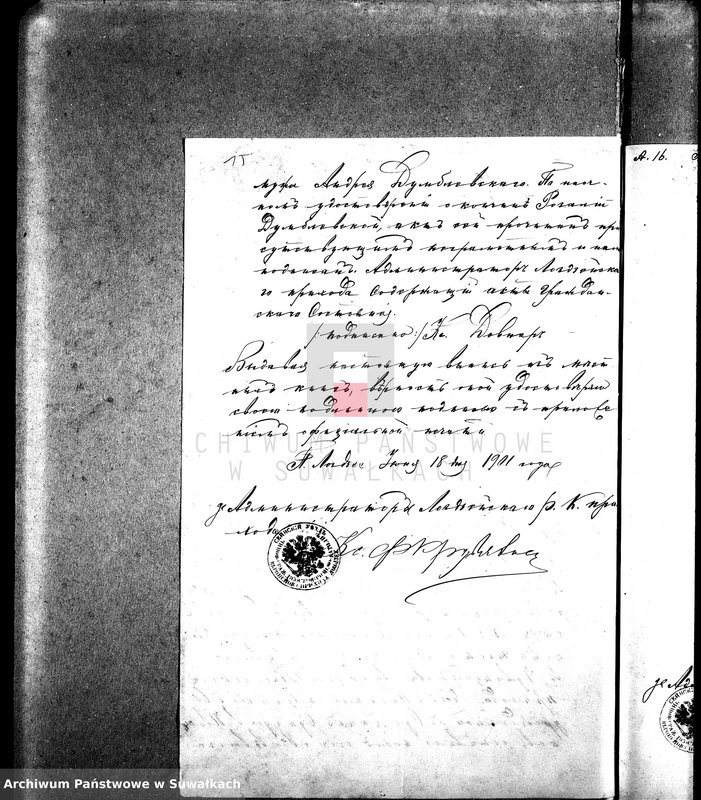 15
мужа Андрея Думбловскаго. По наоч-
номъ удостовѣреніи о кончинѣ Розаліи
Думбловской, актъ сей прочитанъ при
сутствующимъ неграмотнымъ и нами
подписанъ. Администраторъ Лоздзейска
го прихода Содержащій акты Граждан-
скаго Состоянія.
/:подписано:/ Кс. Довнаръ
Выдавая настоящую выпись изъ мѣст
ныхъ книгъ, вѣрность оной удостовѣряю
своею подписью съ приложе
ніемъ оффиціальной печати
Лоздзее Іюня 18 дня 1901 года
за Администратора Лоздзейскаго Р. К. при
хода
Кс.
А. 16.
за Ад
ARCHIWUM PAŃSTWOWE
W SUWAŁKACH
Archiwum Państwowe w Suwałkach